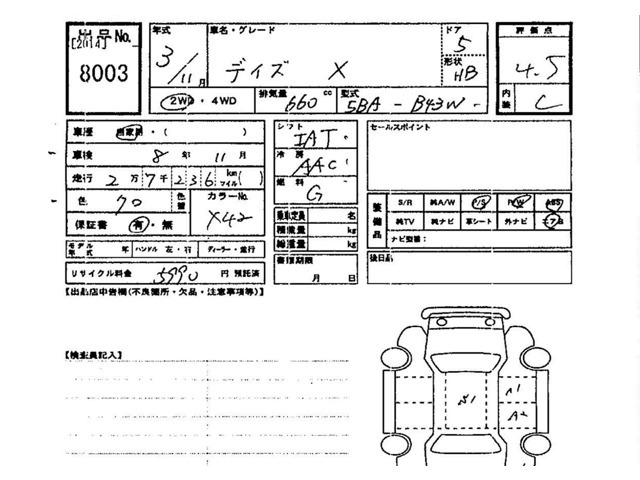 出品No.
[2014]
8003
年式
3/11月
車名・グレード
デイズ X
ドア
5
形状
HB
評価点
4.5
内装
C
2WD・4WD
排気量 660 cc
型式 5BA - B43W -
車歴 自家用・( )
車検 8年 11月
走行 2万7千236 km マイル( )
色 クロ
色替
カラーNo.
X42
保証書 有・無
モデル年式 年 ハンドル 左・右 ディーラー・並行
リサイクル料金 5990 円 預託済
シフト
IAT
冷房
AAC
燃料
G
乗車定員 名
積載量 kg
総重量 kg
書類期限
月 日
セールスポイント
装備品
S/R 純A/W P/S P/W ABS
純TV 純ナビ 革シート 外ナビ エアB
ナビ型番:
後日品
【出品店申告欄(不良箇所・欠品・注意事項等)】
【検査員記入】
A1
A1
A2